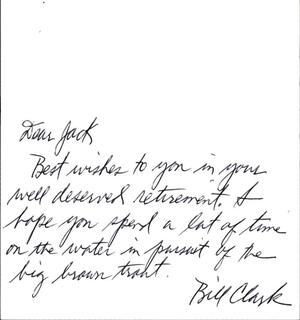 Dear Jack
Best wishes to you in your
well deserved retirement. I
hope you spend a lot of time
on the water in pursuit of the
big brown trout.
Bill Clark